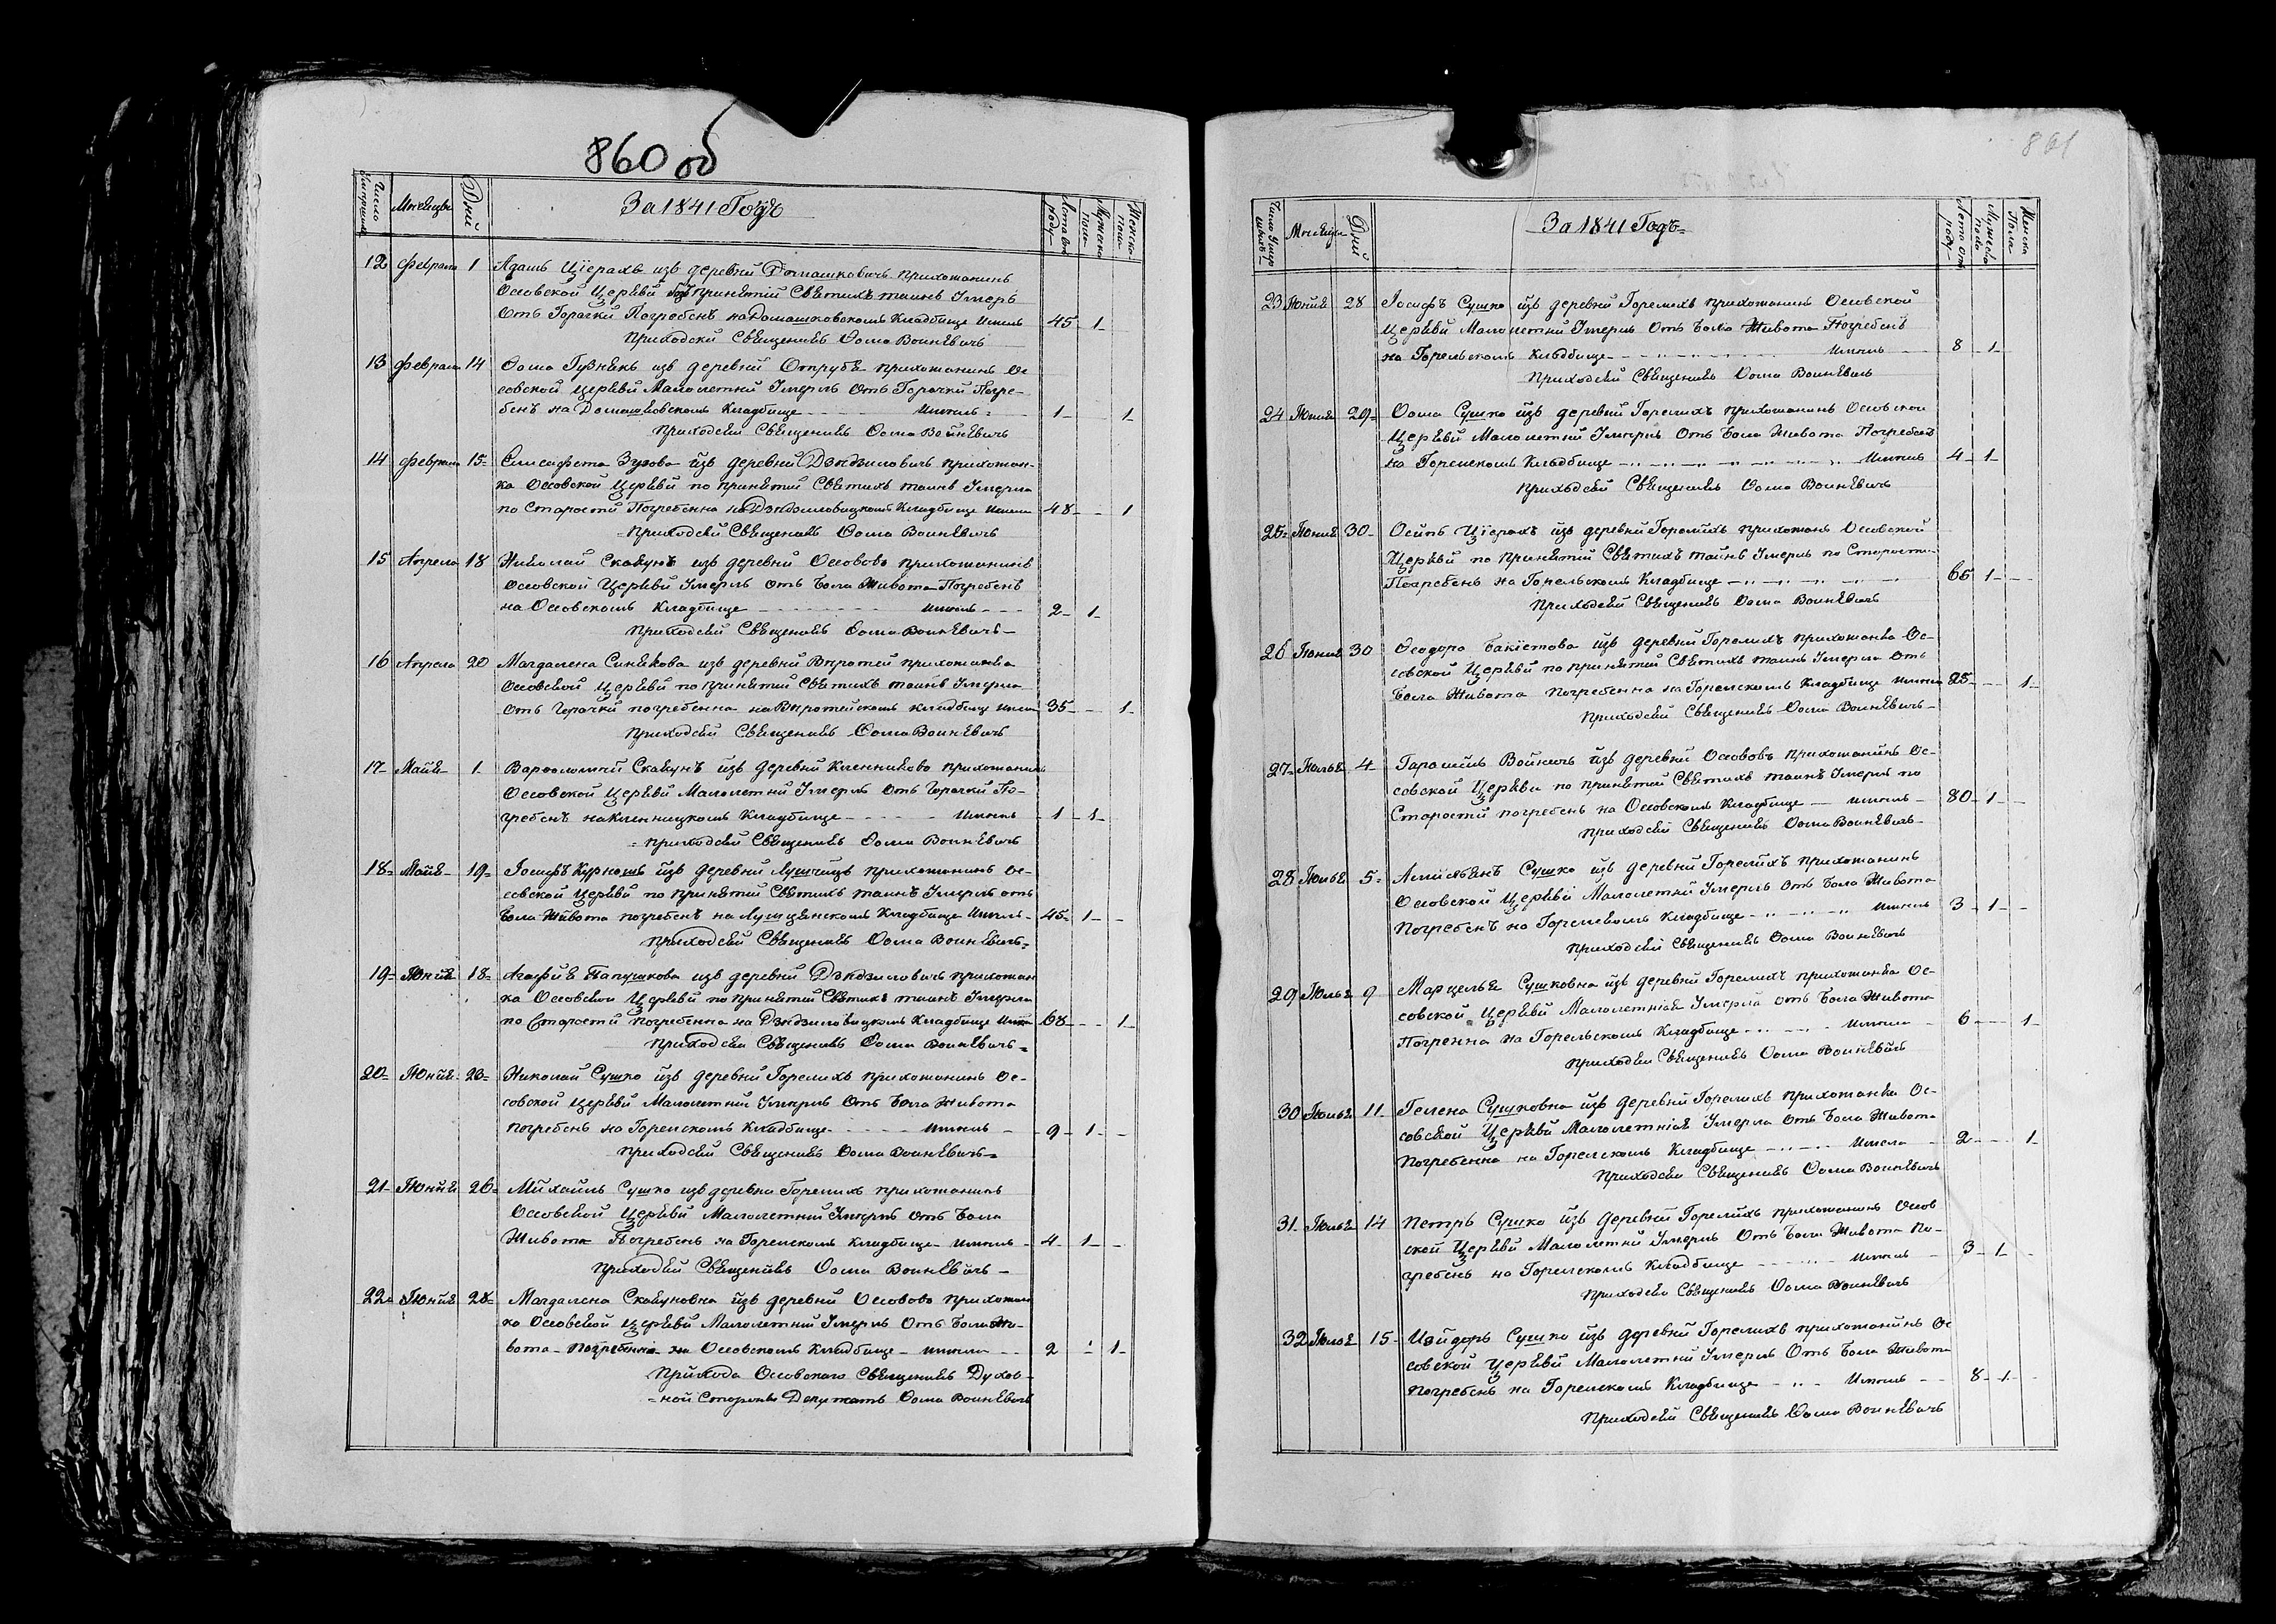 860 об
Число умершихъ Месяцы Дней За 1841 Годъ Лета отъ роду Мужеска пола Женска пола
12 Февраля 1 Адамъ Цїерахъ изъ деревни Домашковичъ прихожанинъ
Оссовской Церкви по принятїи Святихъ таинъ Умеръ
Отъ Горачки Погребенъ на Домашковскомъ Кладбище Имелъ 45 1
Приходскй Священикъ Ѳома Войневичъ
13 Февраля 14 Ѳома из деревни Отрубе прихожанинъ Ос
совской церкви Малолетнй Умерлъ отъ Горачки Погре-
бенъ на Домашковскомъ Кладбище Имелъ 1 1
Приходскй Священикъ Ѳома Войневичъ
14 Февраля 15 Елисафета Зузова изъ деревни прихожан-
ка Оссовской Церкви по принятїи Святихъ таинъ Умерла
по Старости Погребенна на Кладбище Имела 48 1
Приходскй Священикъ Ѳома Воиневичъ
15 Апреля 18 Николай Скакунъ изъ деревни Оссовово прихожанинъ
Оссовской Церкви Умерлъ отъ Бола Живота Погребенъ
на Оссовскомъ Кладбище Имелъ 2 1
Приходскй Священикъ Ѳома Воиневичъ
16 Апреля 20 Магдалена Синякова изъ деревни прихожанка
Оссовской Церкви по принятїи Святихъ таинъ Умерла
Отъ Горачки погребенна на кладбище Имела 35 1
Приходскй Священикъ Ѳома Воиневичъ
17 Майя 1 Варѳоломей Скакунъ изъ деревни Кленниково прихожанинъ
Оссовской Церкви Малолетнй Умерлъ Отъ Горачки По-
гребенъ на Кленницкомъ Кладбище Имелъ 1 1
приходскй Священикъ Ѳома Воиневичъ
18 Майя 19 Їосифъ изъ деревни Лущицъ прихожанинъ Ос-
совской Церкви по принятїи Святихъ таинъ Умерлъ отъ
Бола Живота погребенъ на Лущцянскомъ Кладбище Имелъ 45 1
приходскй Священикъ Ѳома Воиневичъ
19 Юнйя 18 Агафия Папушкова изъ деревни прихожан
ка Оссовской Церкви по принятїи Святихъ таинъ Умерла
по Старости погребенна на Кладбище 68 1
приходскй Священикъ Ѳома Воиневичъ
20 Юнйя 23 Николай Сушко изъ деревни Горелихъ прихожанинъ Ос-
совской церкви Малолетнй Умерлъ Отъ Бола Живота
погребенъ на Горелскомъ Кладбище Имелъ 9 1
приходскй Священикъ Ѳома Воиневичъ
21 Юнйя 26 Михаилъ Сушко изъ деревни Горелихъ прихожанинъ
Оссовской Церкви Малолетнй Умерлъ отъ Бола
Живота Погребенъ на Горелскомъ Кладбище Имелъ 4 1
Приходскй Священикъ Ѳома Воиневичъ
22 Юнйя 28 Магдалена Скакуновна изъ деревни Оссовово прихожан
ка Оссовской церкви Малолетнй Умерлъ Отъ Бола Жи-
вота погребенна на Оссовскомъ Кладбище имела 2 1
Прихода Оссовского Священикъ Духов-
ной Стороны Депутатъ Ѳома Воиневичъ
861
Число Умершихъ Месяцы Дней За 1841 Годъ Лета отъ роду Мужеска пола Женска Пола
23 Юнйя 28 Їосифъ Сушко изъ деревни Горелихъ прихожанинъ Оссовской
Церкви Малолетнй Умерлъ Отъ Бола Живота Погребенъ
на Горелскомъ Кладбище Имелъ 8 1
Приходскй Священикъ Ѳома Воиневичъ
24 Юнйя 29 Ѳома Сушко изъ деревни Горелихъ прихожанинъ Оссовской
Церкви Малолетнй Умерлъ Отъ Бола Живота Погребенъ
на Горелскомъ Кладбище Имелъ 4 1
Приходскй Священикъ Ѳома Воиневичъ
25 Юнйя 30 Осипъ Цїерахъ изъ деревни Горелихъ прихожанъ Оссовской
Церкви по принятїи Святихъ таинъ Умерлъ по Старости
Погребенъ на Горелскомъ Кладбище 65 1
Приходскй Священикъ Ѳома Воиневичъ
26 Юнйя 30 Ѳеодора изъ деревни Горелихъ прихожанка Ос-
совской Церкви по принятїи Святихъ таинъ Умерла Отъ
Бола Живота погребенна на Горелскомъ Кладбище Имела 25 1
Приходскй Священикъ Ѳома Воиневичъ
27 Юлья 4 Гарасимъ Войничъ изъ деревни Оссововъ прихожанинъ Ос-
совской Церкви по принятїи Святихъ таинъ Умерлъ по
Старости погребенъ на Оссовскомъ Кладбище имелъ 80 1
Приходскй Священикъ Ѳома Воиневичъ
28 Юлья 5 Сушко изъ деревни Горелихъ прихожанинъ
Оссовской Церкви Малолетнй Умерлъ отъ Бола Живота
Погребенъ на Горелскомъ Кладбище имелъ 3 1
Приходскй Священикъ Ѳома Воиневичъ
29 Юлья 9 Марцелья Сушковна изъ деревни Горелихъ прихожанка Ос-
совской Церкви Малолетнїя Умерла отъ Бола Живота
Погренна на Горелскомъ Кладбище имела 6 1
приходскй Священикъ Ѳома Воиневичъ
30 Юлья 11 Гелена Сушковна изъ деревни Горелихъ прихожанка Ос-
совской Церкви Малолетнїя Умерла отъ Бола Живота
Погребенна на Горелскомъ Кладбище Имела 2 1
приходскй Священикъ Ѳома Воиневичъ
31 Юлья 14 Петръ Сушко изъ деревни Горелихъ прихожанинъ Оссов
ской Церкви Малолетнй Умерлъ Отъ Бола Живота По-
гребенъ на Горелскомъ Кладбище имелъ 3 1
приходскй Священикъ Ѳома Воиневичъ
32 Юлья 15 Изйдоръ Сушко изъ деревни Горелихъ прихожанинъ Ос
совской Церкви Малолетнй Умерлъ Отъ Бола Живота
погребенъ на Горелскомъ Кладбище Имелъ 8 1
Приходскй Священикъ Ѳома Воиневичъ